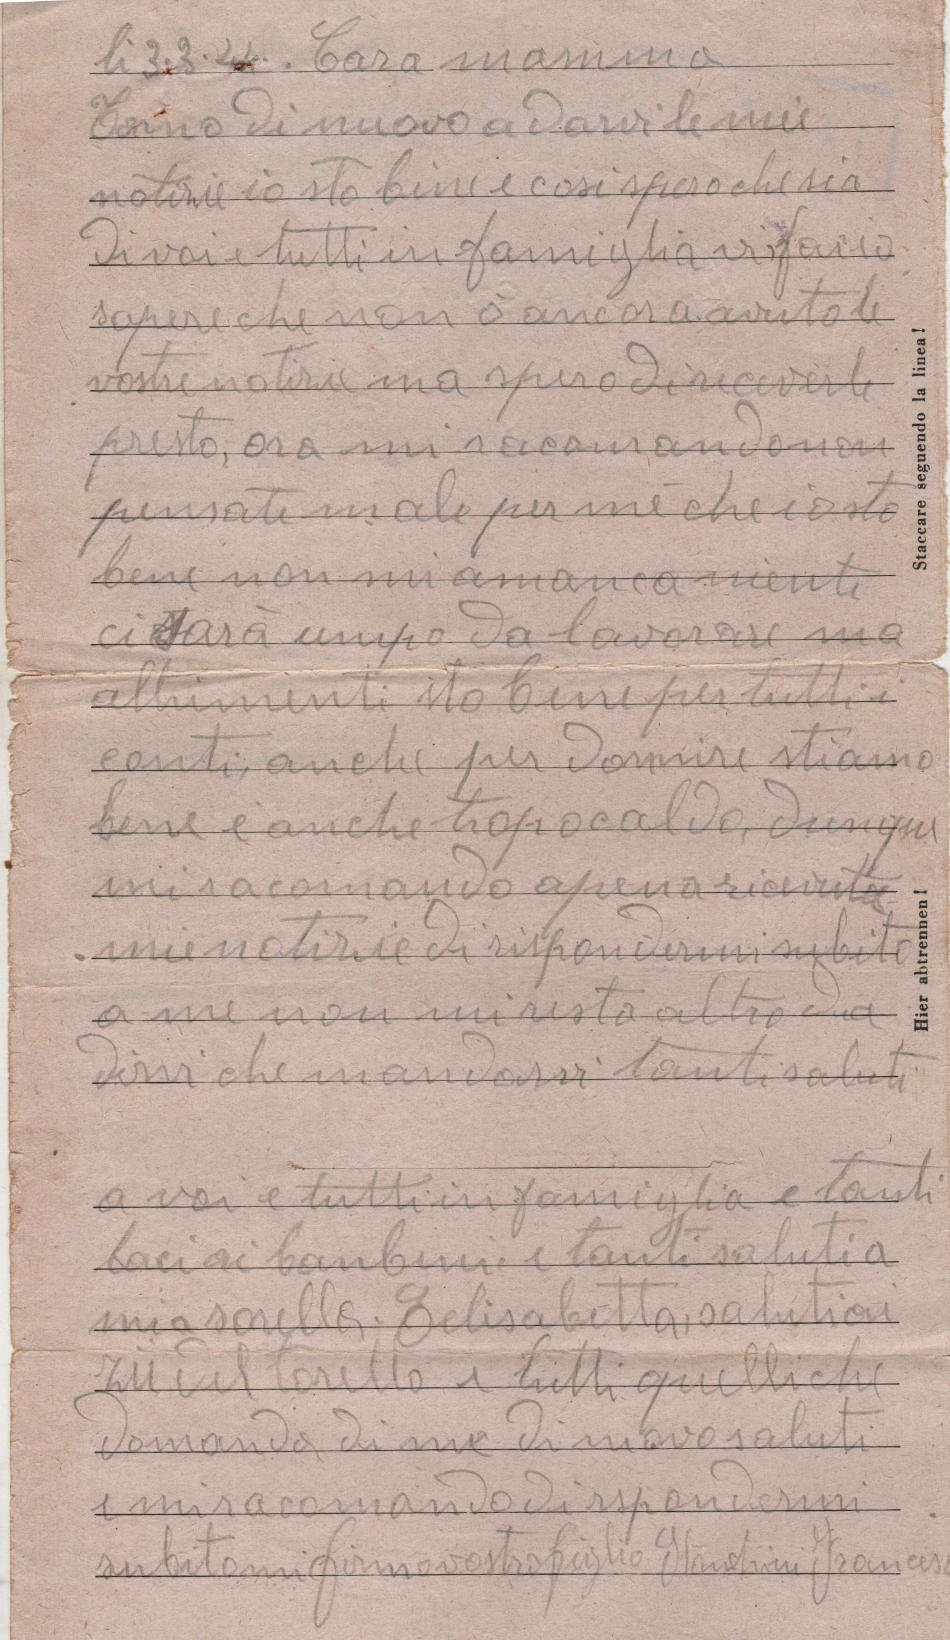 li 3.3.44. Cara mamma
Torno di nuovo a darvi le mie
notizie io sto bene e cosi spero che sia
di voi e tutti in famiglia vi facio
sapere che non ò ancora avuto le
vostre notizie ma spero di riceverle
presto, ora mi racomando non
pensate male per mè che io sto
bene non mi amanca niente
ci sarà un po da lavorare ma
altrimenti sto bene per tutti i
conti, anche per dormire stiamo
bene è anche tropo caldo, dunque
mi racomando apena ricevuta
mie notizie di rispondermi subito
a me non mi resta altro da
dirvi che mandarvi tanti saluti
a voi e tutti in famiglia e tanti
baci ai banbini e tanti saluti a
mia sorella. Eelisabetta, saluti ai
zii del toretto e tutti quelli che
domanda di me di novo saluti
e mi racomando di rspondermi
subito mi firmo vostro figlio Francesco
Staccare seguendo la linea!
Hier abtrennen!